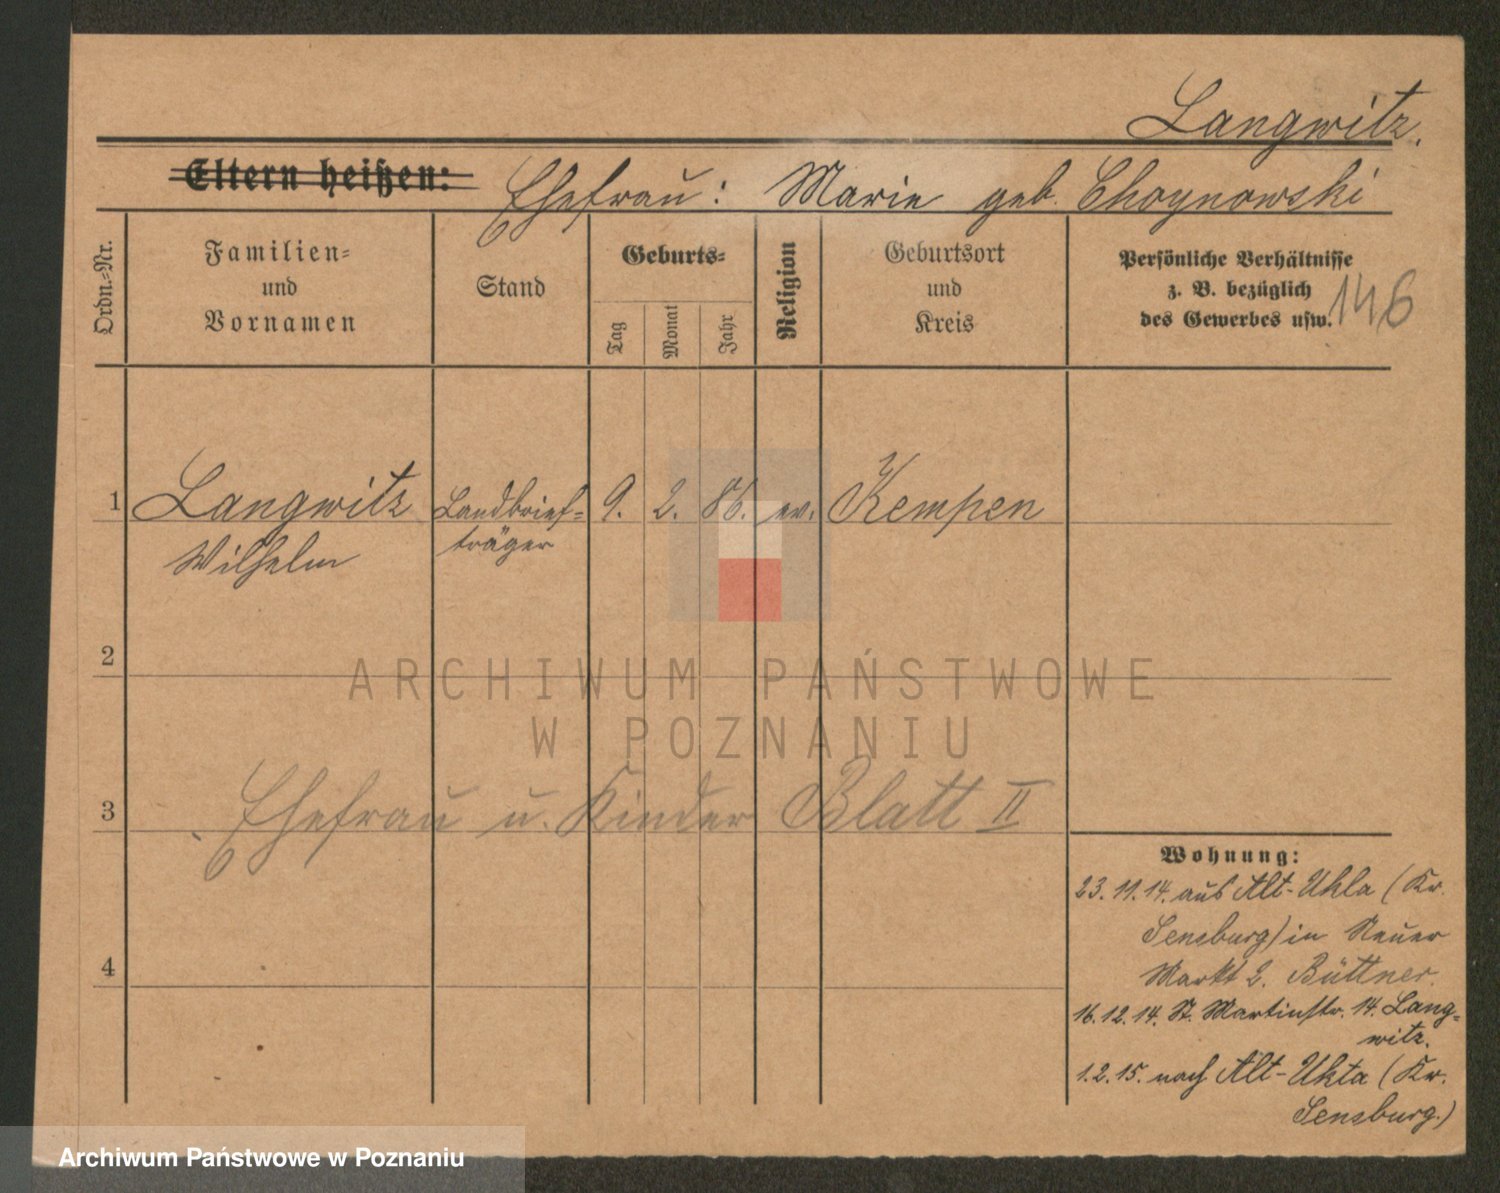 Langwitz.
Eltern heißen: Ehefrau: Marie geb. Choynowski
Ordn.-Nr.
Familien-
und
Vornamen
Stand
Geburts-
Tag
Monat
Jahr
Religion
Geburtsort
und
Kreis
Persönliche Verhältnisse
z. B. bezüglich
des Gewerbes usw.
146
1 Langwitz Landbrief- 9. 2. 86. ev. Kempen
Wilhelm träger
2
ARCHIWUM PAŃSTWOWE
W POZNANIU
3 Ehefrau u. Kinder Blatt II
Wohnung:
23. 11. 14. aus Alt-Ukla (Kr.
Sensburg) in Neuer
Markt 2. Büttner.
4
16. 12. 14. St. Martinstr. 14. Lang-
witz.
1. 2. 15. nach Alt-Ukta (Kr.
Sensburg.)
Archiwum Państwowe w Poznaniu